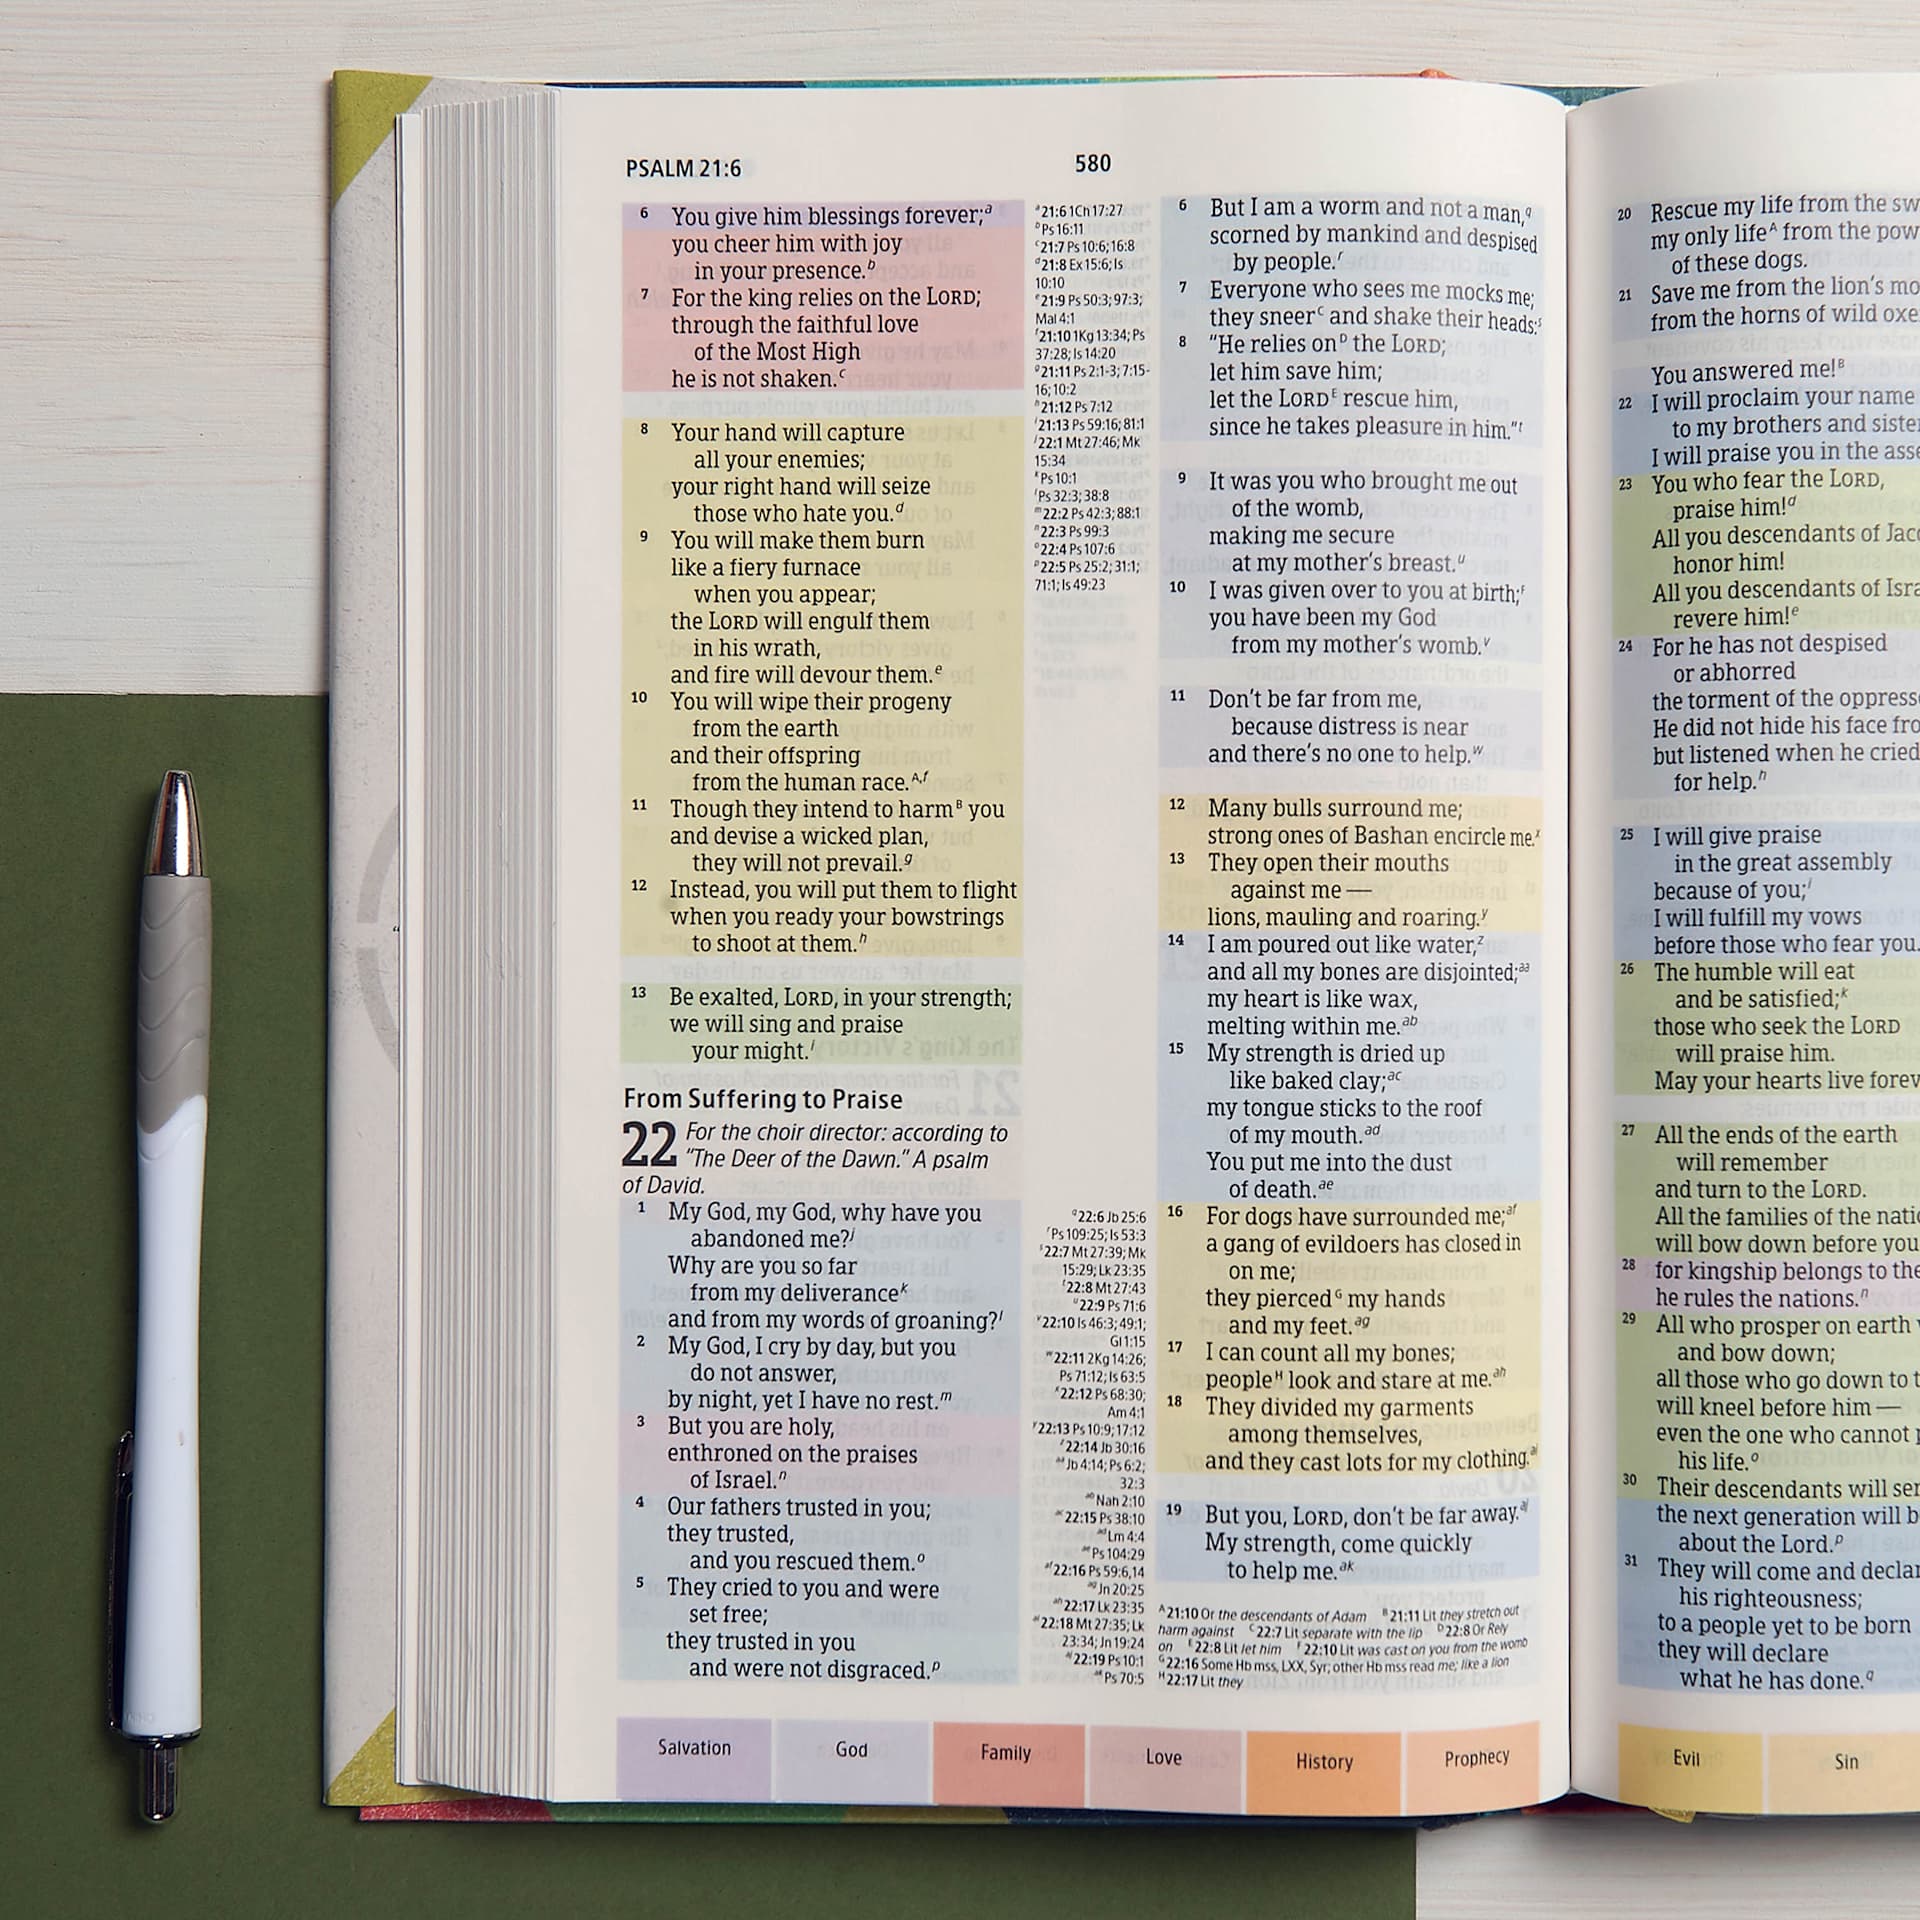 PSALM 21:6
580
6 You give him blessings forever;a
you cheer him with joy
in your presence.b
7 For the king relies on the LORD;
through the faithful love
of the Most High
he is not shaken.c
8 Your hand will capture
all your enemies;
your right hand will seize
those who hate you.d
9 You will make them burn
like a fiery furnace
when you appear;
the LORD will engulf them
in his wrath,
and fire will devour them.e
10 You will wipe their progeny
from the earth
and their offspring
from the human race.A,f
11 Though they intend to harmB you
and devise a wicked plan,
they will not prevail.g
12 Instead, you will put them to flight
when you ready your bowstrings
to shoot at them.h
13 Be exalted, LORD, in your strength;
we will sing and praise
your might.i
From Suffering to Praise
22 For the choir director: according to
"The Deer of the Dawn." A psalm
of David.
1 My God, my God, why have you
abandoned me?j
Why are you so far
from my deliverancek
and from my words of groaning?l
2 My God, I cry by day, but you
do not answer,
by night, yet I have no rest.m
3 But you are holy,
enthroned on the praises
of Israel.n
4 Our fathers trusted in you;
they trusted,
and you rescued them.o
5 They cried to you and were
set free;
they trusted in you
and were not disgraced.p
a21:6 1Ch 17:27
bPs 16:11
c21:7 Ps 10:6; 16:8
d21:8 Ex 15:6; Is
10:10
e21:9 Ps 50:3; 97:3;
Mal 4:1
f21:10 1Kg 13:34; Ps
37:28; Is 14:20
g21:11 Ps 2:1-3; 7:15-
16; 10:2
h21:12 Ps 7:12
i21:13 Ps 59:16; 81:1
j22:1 Mt 27:46; Mk
15:34
kPs 10:1
lPs 32:3; 38:8
m22:2 Ps 42:3; 88:1
n22:3 Ps 99:3
o22:4 Ps 107:6
p22:5 Ps 25:2; 31:1;
71:1; Is 49:23
q22:6 Jb 25:6
rPs 109:25; Is 53:3
s22:7 Mt 27:39; Mk
15:29; Lk 23:35
t22:8 Mt 27:43
u22:9 Ps 71:6
v22:10 Is 46:3; 49:1;
Gl 1:15
w22:11 2Kg 14:26;
Ps 71:12; Is 63:5
x22:12 Ps 68:30;
Am 4:1
y22:13 Ps 10:9; 17:12
z22:14 Jb 30:16
aaJb 4:14; Ps 6:2;
32:3
abNah 2:10
ac22:15 Ps 38:10
adLm 4:4
aePs 104:29
af22:16 Ps 59:6,14
agJn 20:25
ah22:17 Lk 23:35
ai22:18 Mt 27:35; Lk
23:34; Jn 19:24
aj22:19 Ps 10:1
akPs 70:5
6 But I am a worm and not a man,q
scorned by mankind and despised
by people.r
7 Everyone who sees me mocks me;
they sneerC and shake their heads:s
8 "He relies onD the LORD;
let him save him;
let the LORDE rescue him,
since he takes pleasure in him."t
9 It was you who brought me out
of the womb,
making me secure
at my mother's breast.u
10 I was given over to you at birth;F
you have been my God
from my mother's womb.v
11 Don't be far from me,
because distress is near
and there's no one to help.w
12 Many bulls surround me;
strong ones of Bashan encircle me.x
13 They open their mouths
against me —
lions, mauling and roaring.y
14 I am poured out like water,z
and all my bones are disjointed;aa
my heart is like wax,
melting within me.ab
15 My strength is dried up
like baked clay;ac
my tongue sticks to the roof
of my mouth.ad
You put me into the dust
of death.ae
16 For dogs have surrounded me;af
a gang of evildoers has closed in
on me;
they piercedG my hands
and my feet.ag
17 I can count all my bones;
peopleH look and stare at me.ah
18 They divided my garments
among themselves,
and they cast lots for my clothing.ai
19 But you, LORD, don't be far away.aj
My strength, come quickly
to help me.ak
A21:10 Or the descendants of Adam B21:11 Lit they stretch out
harm against C22:7 Lit separate with the lip D22:8 Or Rely
on E22:8 Lit let him F22:10 Lit was cast on you from the womb
G22:16 Some Hb mss, LXX, Syr; other Hb mss read me; like a lion
H22:17 Lit they
Salvation
God
Family
Love
History
Prophecy
20 Rescue my life from the sw
my only lifeA from the pow
of these dogs.
21 Save me from the lion's mo
from the horns of wild oxe
You answered me!B
22 I will proclaim your name
to my brothers and sister
I will praise you in the asse
23 You who fear the LORD,
praise him!d
All you descendants of Jaco
honor him!
All you descendants of Isra
revere him!e
24 For he has not despised
or abhorred
the torment of the oppresse
He did not hide his face fro
but listened when he cried
for help.h
25 I will give praise
in the great assembly
because of you;i
I will fulfill my vows
before those who fear you.
26 The humble will eat
and be satisfied;k
those who seek the LORD
will praise him.
May your hearts live forev
27 All the ends of the earth
will remember
and turn to the LORD.
All the families of the natio
will bow down before you
28 for kingship belongs to the
he rules the nations.n
29 All who prosper on earth
and bow down;
all those who go down to t
will kneel before him —
even the one who cannot p
his life.o
30 Their descendants will ser
the next generation will b
about the Lord.p
31 They will come and declar
his righteousness;
to a people yet to be born
they will declare
what he has done.q
Evil
Sin